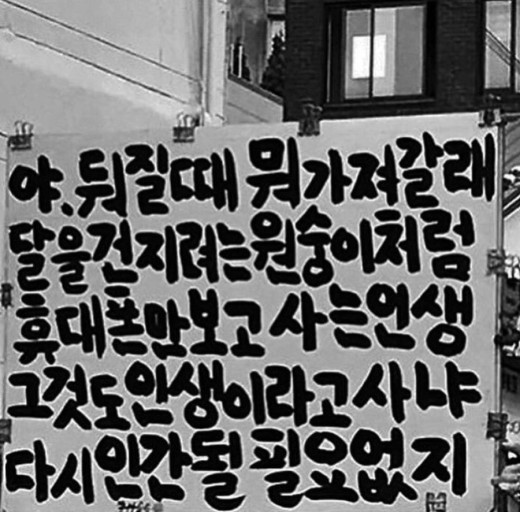 야. 뒈질때 뭐가져갈래
달을건지려는원숭이처럼
휴대폰만보고 사는인생
그것도인생이라고사냐
다시인간될필요없지